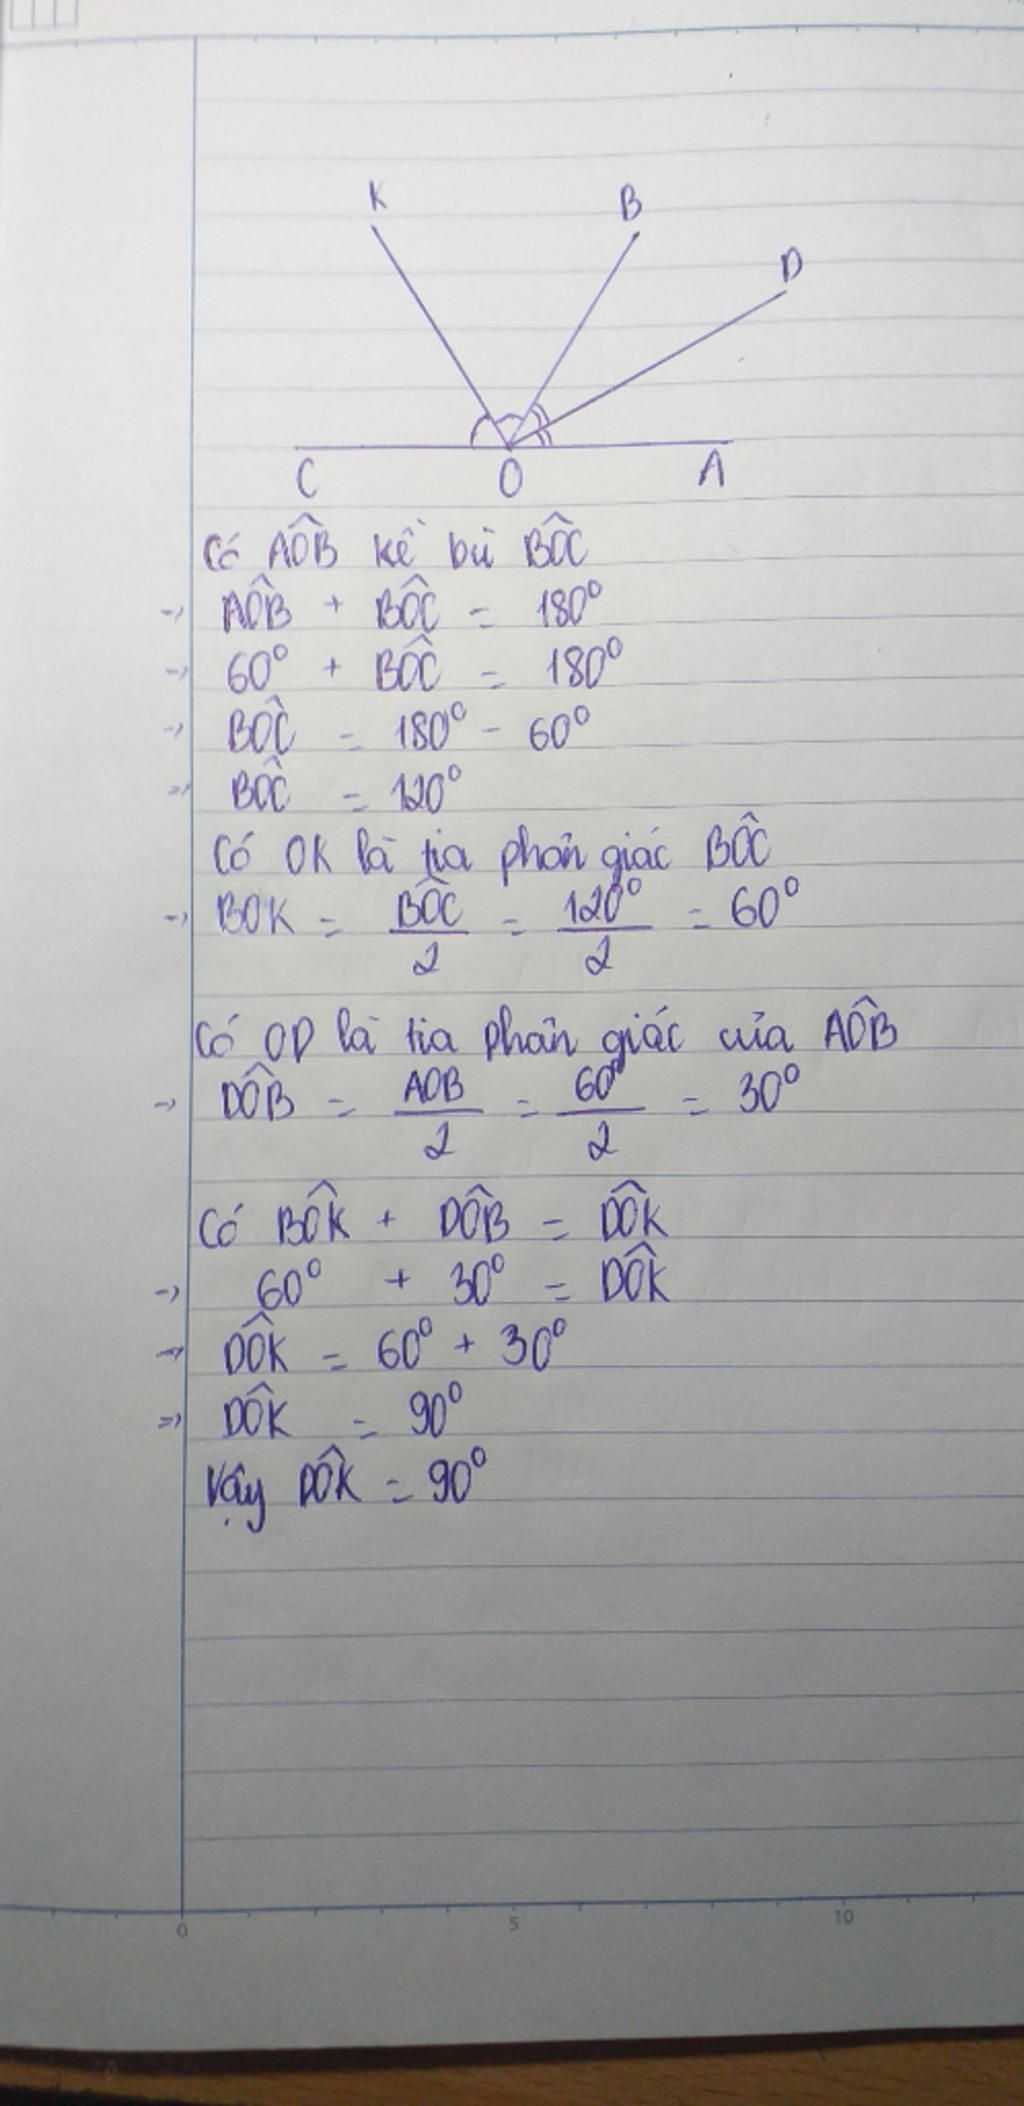 K
B
D
C
O
A
Có AÔB kề bù BÔC
=> AÔB + BÔC = 180°
=> 60° + BÔC = 180°
=> BÔC = 180° - 60°
=> BÔC = 120°
Có OK là tia phân giác BÔC
=> BOK = BÔC/2 = 120°/2 = 60°
Có OD là tia phân giác của AÔB
=> DÔB = AOB/2 = 60°/2 = 30°
Có BÔK + DÔB = DÔK
=> 60° + 30° = DÔK
=> DÔK = 60° + 30°
=> DÔK = 90°
Vậy DÔK = 90°
0 5 10